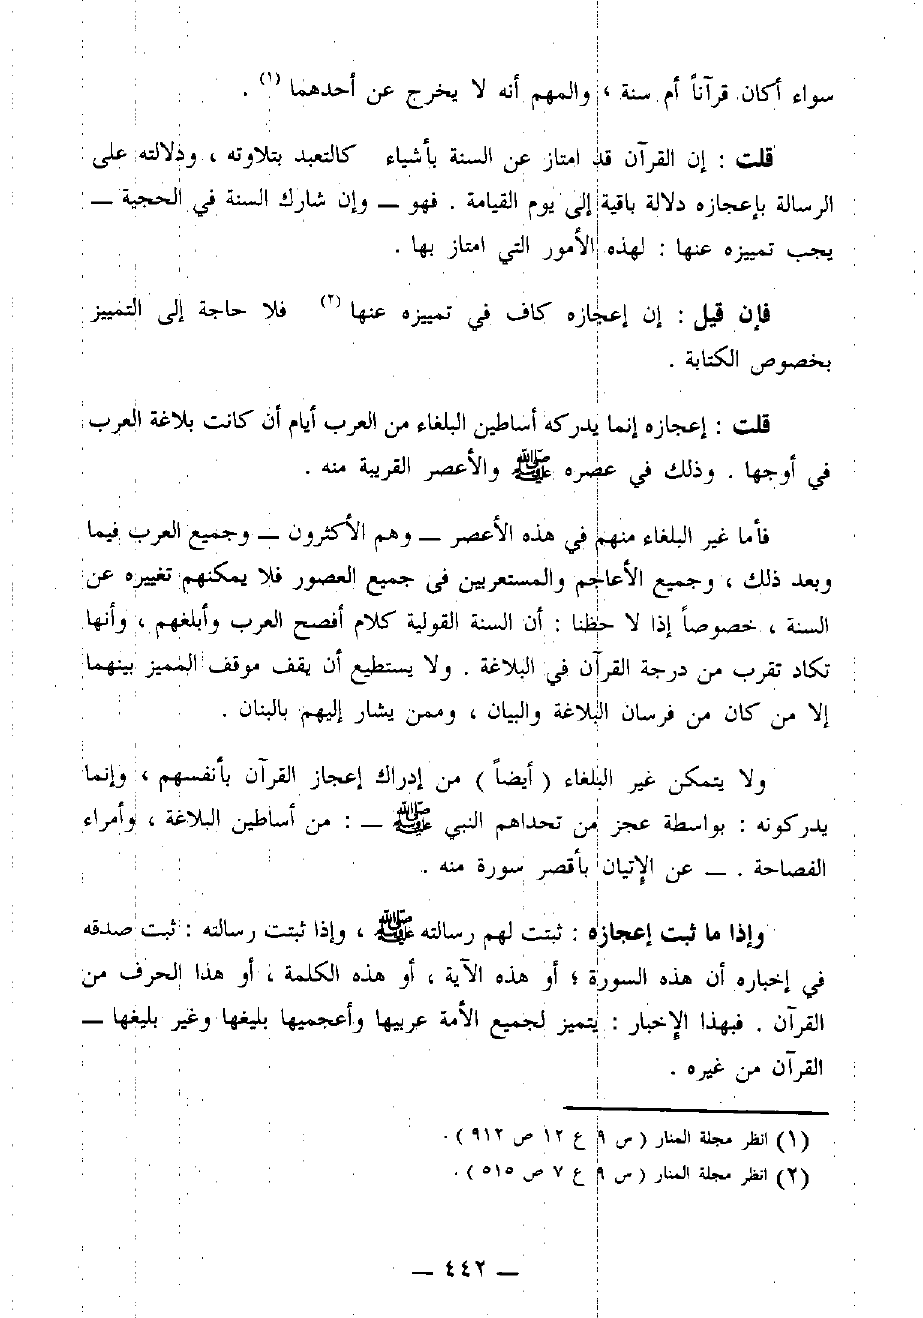 سواء أكان قرآناً أم سنة ، والمهم أنه لا يخرج عن أحدهما (١) .
قلت : إن القرآن قد امتاز عن السنة بأشياء كالتعبد بتلاوته ، ودلالته على
الرسالة بإعجازه دلالة باقية إلى يوم القيامة . فهو — وإن شارك السنة في الحجية —
يجب تمييزه عنها : لهذه الأمور التي امتاز بها .
فإن قيل : إن إعجازه كاف في تمييزه عنها (٢) فلا حاجة إلى التمييز
بخصوص الكتابة .
قلت : إعجازه إنما يدركه أساطين البلغاء من العرب أيام أن كانت بلاغة العرب
في أوجها . وذلك في عصره ﷺ والأعصر القريبة منه .
فأما غير البلغاء منهم في هذه الأعصر — وهم الأكثرون — وجميع العرب فيما
وبعد ذلك ، وجميع الأعاجم والمستعربين في جميع العصور فلا يمكنهم تغييره عن
السنة ، خصوصاً إذا لا حظنا : أن السنة القولية كلام أفصح العرب وأبلغهم ، وأنها
تكاد تقرب من درجة القرآن في البلاغة . ولا يستطيع أن يقف موقف المميز بينهما
إلا من كان من فرسان البلاغة والبيان ، وممن يشار إليهم بالبنان .
ولا يتمكن غير البلغاء ( أيضاً ) من إدراك إعجاز القرآن بأنفسهم ، وإنما
يدركونه : بواسطة عجز من تحداهم النبي ﷺ — : من أساطين البلاغة ، وأمراء
الفصاحة . — عن الإتيان بأقصر سورة منه .
وإذا ما ثبت إعجازه : ثبتت لهم رسالته ﷺ ، وإذا ثبتت رسالته : ثبت صدقه
في إخباره أن هذه السورة ؛ أو هذه الآية ، أو هذه الكلمة ، أو هذا الحرف من
القرآن . فبهذا الإخبار : يتميز لجميع الأمة عربيها وأعجميها بليغها وغير بليغها —
القرآن من غيره .
(١) انظر مجلة المنار ( س ٩ ع ١٢ ص ٩١٢ ) .
(٢) انظر مجلة المنار ( س ٩ ع ٧ ص ٥١٥ ) .
— ٤٤٢ —